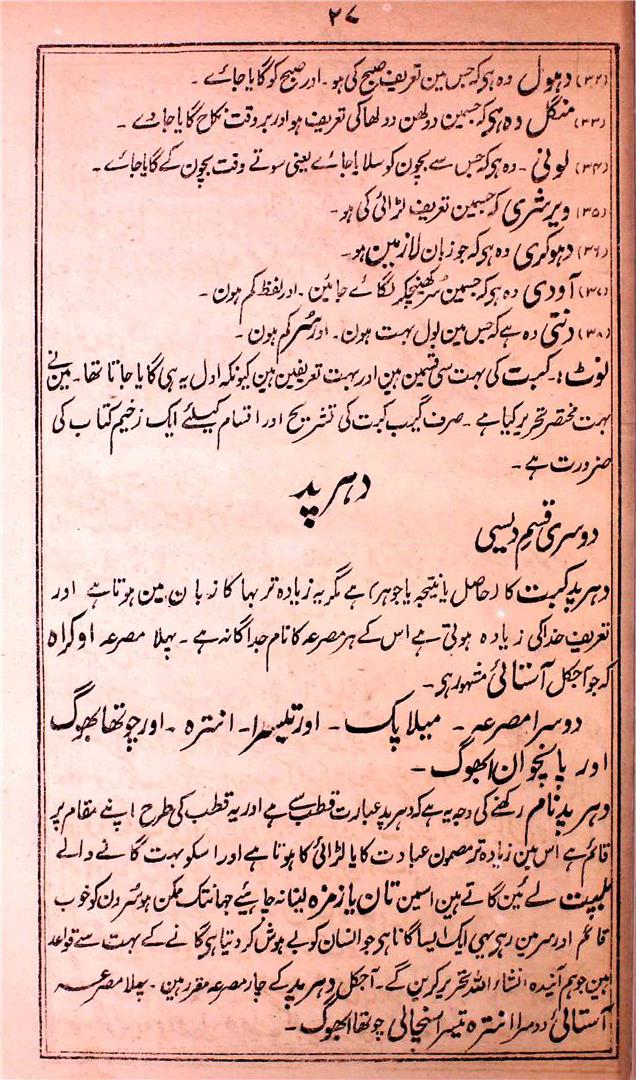 ۲۷
(۳۲) دہول وہ ہی کہ جس مین تعریف صبح کی ہو ۔ اور صبح کو گایا جائے ۔
(۳۳) منگل وہ ہی کہ جسمین دولھن دولھا کی تعریف ہو اور بروقت نکاح گایا جاوے ۔
(۳۴) لوئی ۔ وہ ہی کہ جس سے بچون کو سلایا جائے یعنی سوتے وقت بچون کے گایا جائے ۔
(۳۵) ویرشری کہ جسمین تعریف لڑائی کی ہو ۔
(۳۶) دہوکری وہ ہی کہ جو زبان لاڑ مین ہو ۔
(۳۷) آودی وہ ہو کہ جسمین سُر کھینچکر لگائے جائین ۔ اور لفظ کم ہون ۔
(۳۸) دنتی وہ ہے کہ جس مین بول بہت ہون ۔ اور سُر کم ہون ۔
نوٹ :۔ کبت کی بہت سی قسمین ہین اور بہت تعریفین ہین کیونکہ اول یہ ہی گایا جاتا تھا ۔ مین نے
بہت مختصر تحریر کیا ہے ۔ صرف گیرب کبت کی تشریح اور اقسام کیلئے ایک زخیم کتاب کی
ضرورت ہے ۔
دہرپد
دوسری قسم دیسی
دہرپد کبت کا (حاصل یا نتیجہ یا جوہر) ہے مگر یہ زیادہ تر بہاکا زبان مین ہوتا ہے اور
تعریف خدا کی زیادہ ہوتی ہے اس کے ہر مصرعہ کا نام جداگانہ ہے ۔ پہلا مصرعہ اوکراہ
کہ جو آجکل آستائی مشہور ہی ۔
دوسرا مصرعہ ۔ میلاپک ۔ اور تیسرا ۔ انترہ ۔ اور چوتھا بھوگ
اور پانچوان ابھوگ ۔
دہرپد نام رکھنے کی وجہ یہ ہے کہ دہرپد عبارت قطب سے ہے اور یہ قطب کی طرح اپنے مقام پر
قائم ہے اس مین زیادہ تر مضمون عبادت کا یا لڑائی کا ہوتا ہے اور اسکو بہت گانے والے
لمپت لے مین گاتے ہین اسمین تان یا زمزمہ لینا نہ چاہیئے جہانتک ممکن ہو سُردن کو خوب
قائم اور سر مین رہی یہی ایک ایسا گانا ہی جو انسان کو بے ہوش کر دیتا ہی گانے کے بہت سے قواعد
ہین جو ہم آئیندہ انشاء اللہ تحریر کرین گے ۔ آجکل دہرپد کے چار مصرعہ مقرر ہین ۔ پہلا مصرعہ
آستائی دوسرا انترہ تیسرا سنچائی چوتھا ابھوگ ۔